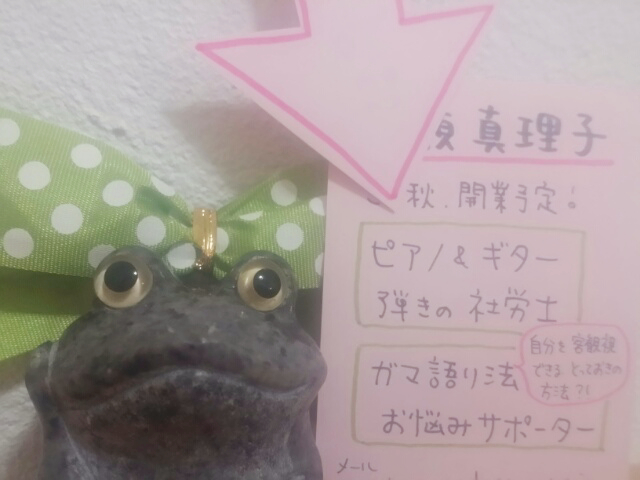 真理子
秋.開業予定。
ピアノ&ギター
弾きの社労士
ガマ語り法
自分を客観視
できるとっておきの
方法?!
お悩みサポーター
メール